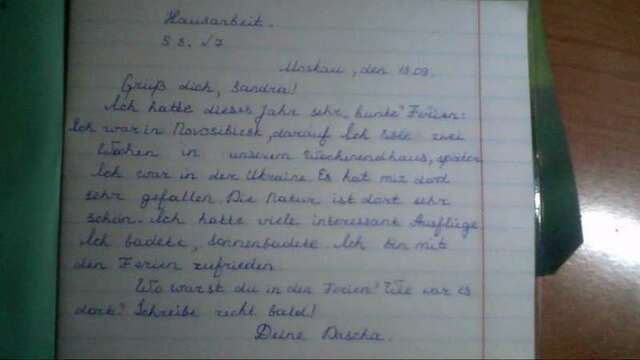 Hausarbeit.
S. 8. √7
Moskau, den 13.09.
Grüß dich, Sandra!
Ich hatte dieses Jahr sehr "bunte" Ferien:
Ich war in Novosibiesk, darauf Ich zwei
Wochen in unserem Wochenendhaus, später
Ich war in der Ukraine. Es hat mir dord
sehr gefallen. Die Natur ist dort sehr
schön. Ich hatte viele interessant Ausflüge.
Ich badete, sonnenbadete. Ich bin mit
den Ferien zufrieden.
Wo warst du in den Ferien? Wie war es
dort? Schreibe recht bald!
Deine Dascha.